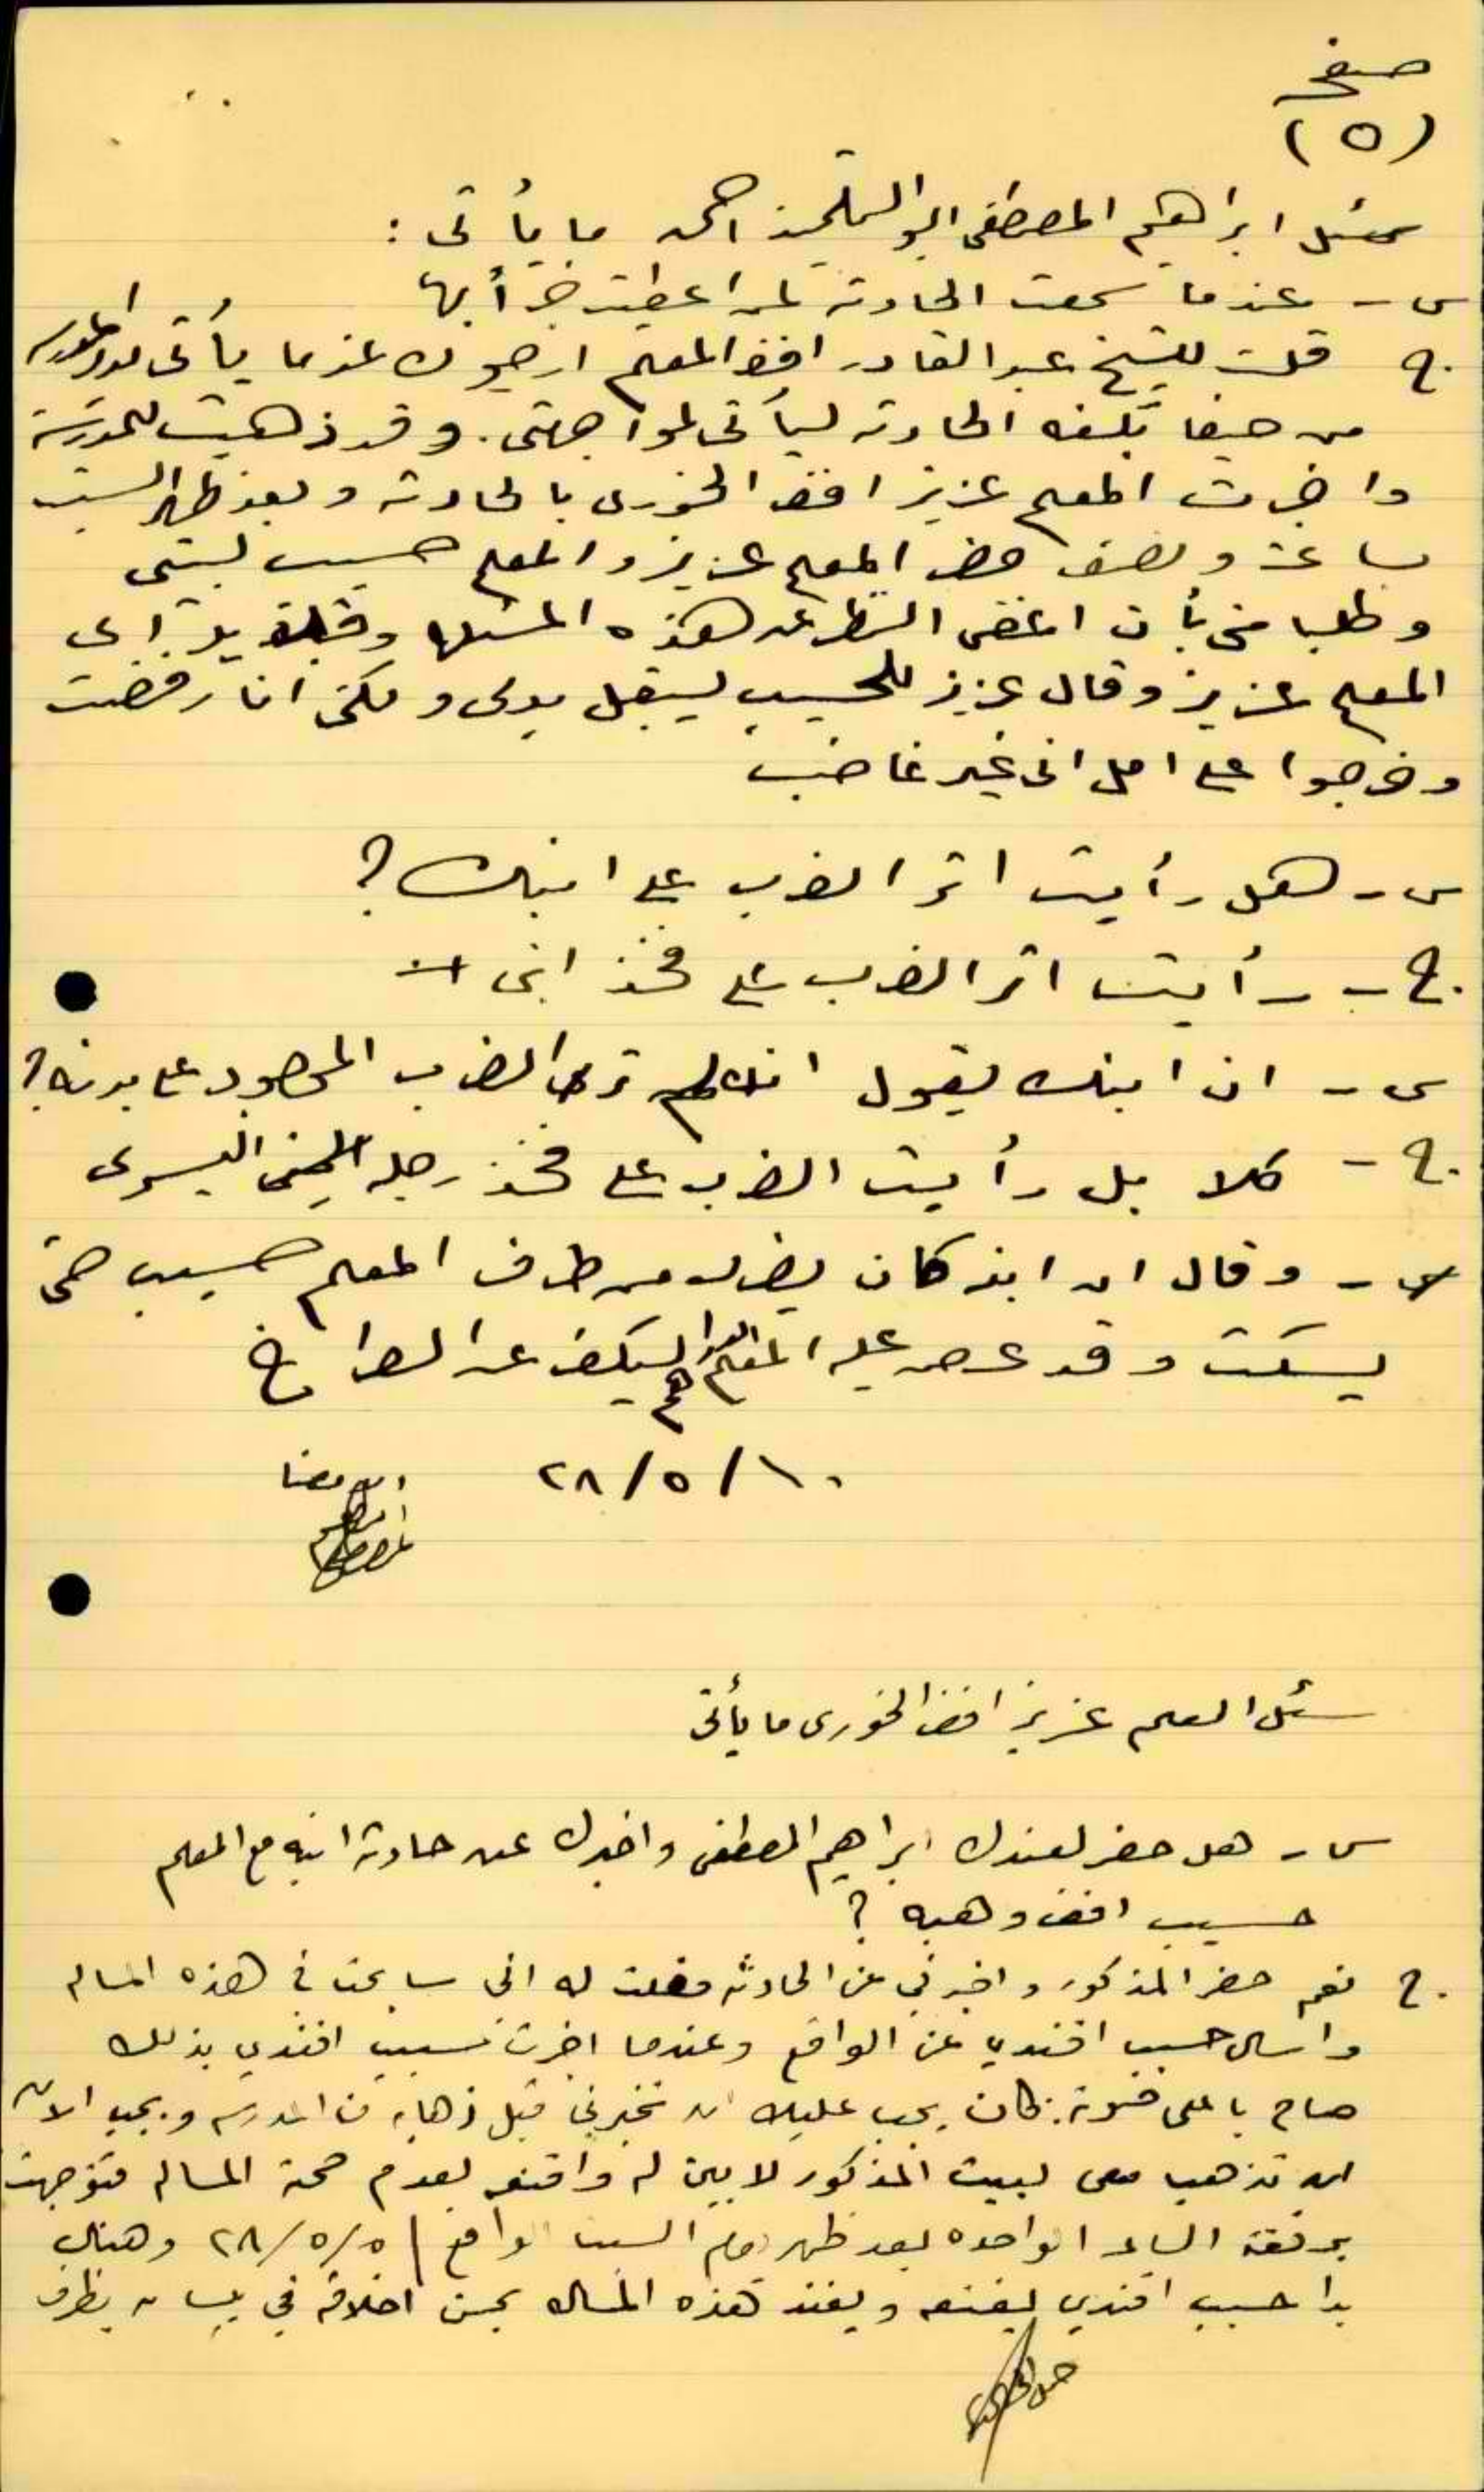 صفح
(٥)
سئل ابراهيم المصطفى ابو التلميذ احمد ما يأتى :
س - عندما سمعت الحادثه لمن اعطيت خبراً بها
ج. قلت للشيخ عبد القادر افندي المعلم ارجوك عندما يأتى مدير المدرسه
من حيفا تبلغه الحادثه ليأتى لمواجهتى. وقد ذهبت للمدرسة
واخبرت المعلم عزيز افندي الخورى بالحادثه وبعد ظهر السبت
بساعة ونصف حضر المعلم عزيز والمعلم حسيب لبيتى
وطلبا منى بأن اغض النظر عن هذه المسئله وقبلا يدى اى
المعلم عزيز وقال عزيز للحسيب ليقبل يدى ولكن انا رفضت
وخرجوا على امل انى غير غاضب
س - هل رأيت اثر الضرب على ابنك ؟
ج. - رأيت اثر الضرب على فخذ ابنى
س - ان ابنك يقول انك لم ترى الضرب الموجود على بدنه ؟
ج. - كلا بل رأيت الضرب على فخذ رجله اليسرى
س - وقال ان ابنه كان يضرب من طرف المعلم حسيب حتى
يسكت وقد عرض عليه المعلم ليكف عن الصراخ
٢٨/٥/١٠ الامضا
ابراهيم المصطفى
سئل المعلم عزيز افندي الخورى ما يأتى
س - هل حضر لعندك ابراهيم المصطفى واخبرك عن حادثة ابنه مع المعلم
حسيب افندي وهبه ؟
ج. نعم حضر المذكور واخبرني عن الحادثه فقلت له اني سابحث في هذه المساله
واسال حسيب افندي عن الواقع وعندما اخبرت حسيب افندي بذلك
صاح باعلى صوته: كان يجب عليك ان تخبرني قبل ذهابه من المدرسه ويجب الان
ان تذهب معى لبيت المذكور لابين له واقنعه بعدم صحة المساله فتوجهت
برفقته الساعه الواحده بعد ظهر يوم السبت الواقع ٢٨/٥/٥ وهناك
بدا حسيب افندي يقنعه ويفند هذه المساله بحسن اخلاقه في بيسان